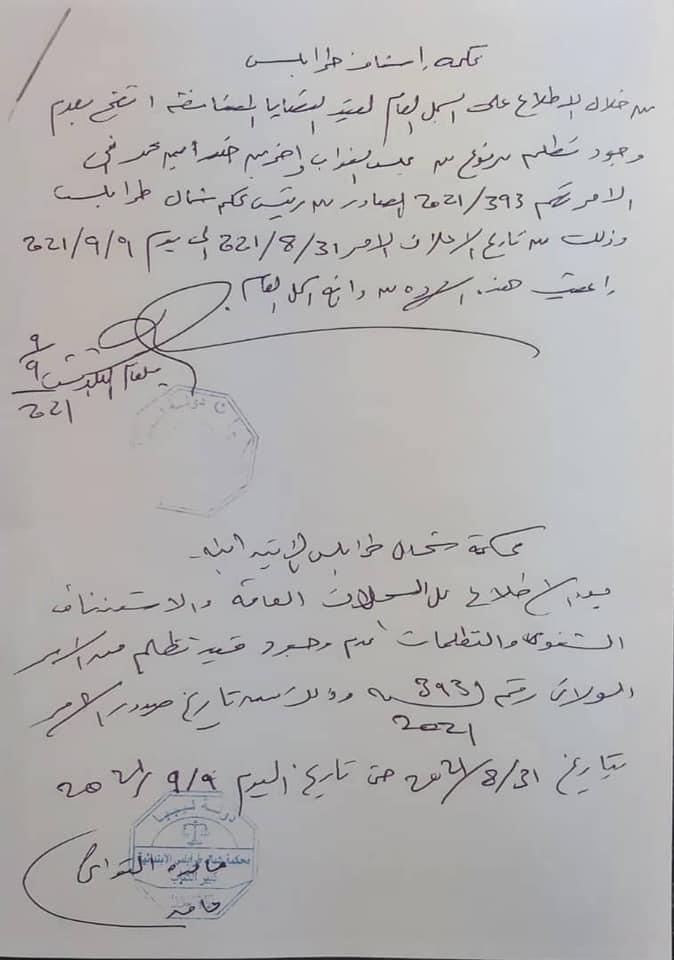 محكمة إستئناف طرابلس
من خلال الاطلاع على السجل العام لقيد القضايا المستأنفة اتضح بعدم
وجود تظلم مرفوع من مجلس النواب واخرين ضد امين محمد في
الامر رقم 2021/393 الصادر من رئيس محكمة شمال طرابلس
وذلك من تاريخ الاعلان الامر 221/8/31 الى يوم 221/9/9
اعطيت هذه من واقع السجل العام
9/9
221
محكمة شمال طرابلس الابتدائية
بعد الاطلاع على السجلات العامة والاستئناف
والتظلمات عدم وجود قيد تظلم عن الامر
الولائي رقم 393 لسنة وذلك منذ تاريخ صدور الامر
2021
بتاريخ 2021/8/31 حتى تاريخ اليوم 9/9/2021
دولة ليبيا
محكمة شمال طرابلس الابتدائية